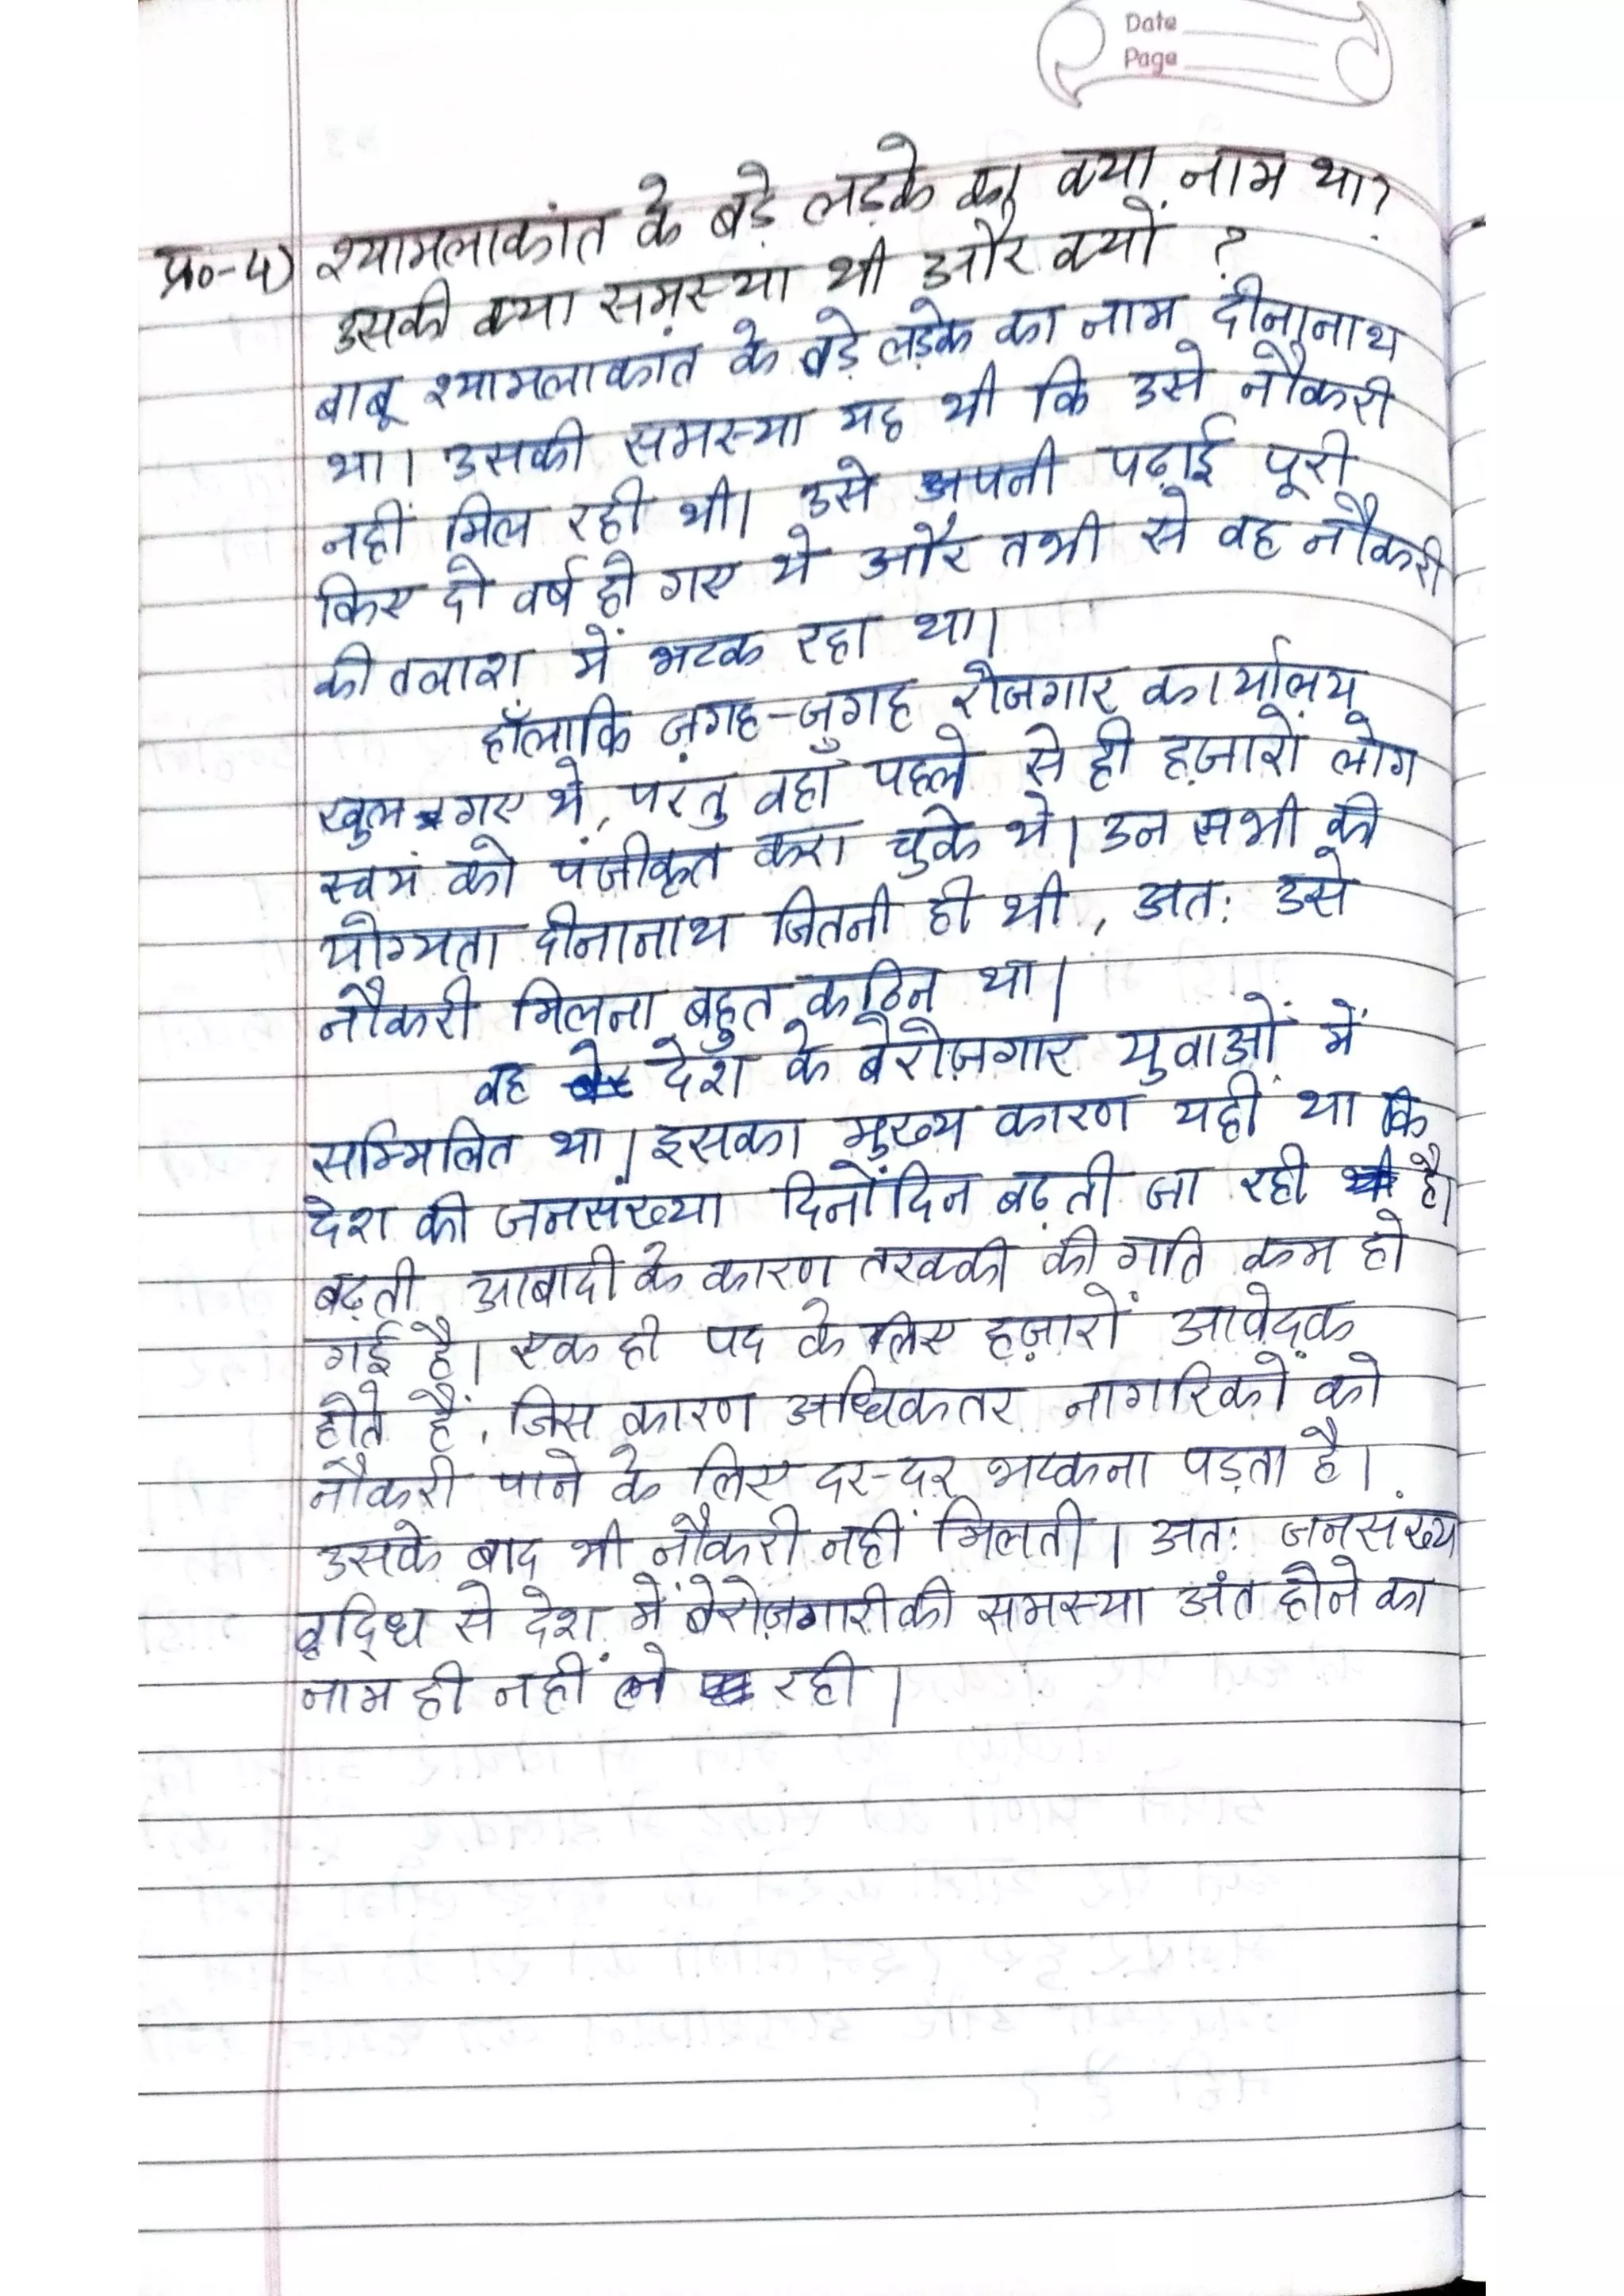 Date
Page
प्र०-4) श्यामलाकांत के बड़े लड़के का क्या नाम था?
उसकी क्या समस्या थी और क्यों ?
बाबू श्यामलाकांत के बड़े लड़के का नाम दीनानाथ
था। उसकी समस्या यह थी कि उसे नौकरी
नहीं मिल रही थी। उसे अपनी पढ़ाई पूरी
किए दो वर्ष हो गए थे और तभी से वह नौकरी
की तलाश में भटक रहा था।
हाँलाकि जगह-जगह रोजगार कार्यालय
खुल गए थे, परंतु वहाँ पहले से ही हज़ारों लोग
स्वयं को पंजीकृत करा चुके थे। उन सभी की
योग्यता दीनानाथ जितनी ही थी, अत: उसे
नौकरी मिलना बहुत कठिन था।
वह देश के बेरोज़गार युवाओं में
सम्मिलित था। इसका मुख्य कारण यही था कि
देश की जनसंख्या दिनोंदिन बढ़ती जा रही है।
बढ़ती आबादी के कारण तरक्की की गति कम हो
गई है। एक ही पद के लिए हज़ारों आवेदक
होते हैं, जिस कारण अधिकतर नागरिकों को
नौकरी पाने के लिए दर-दर भटकना पड़ता है।
उसके बाद भी नौकरी नहीं मिलती। अत: जनसंख्य
वृद्धि से देश में बेरोज़गारी की समस्या अंत होने का
नाम ही नहीं ले रही।